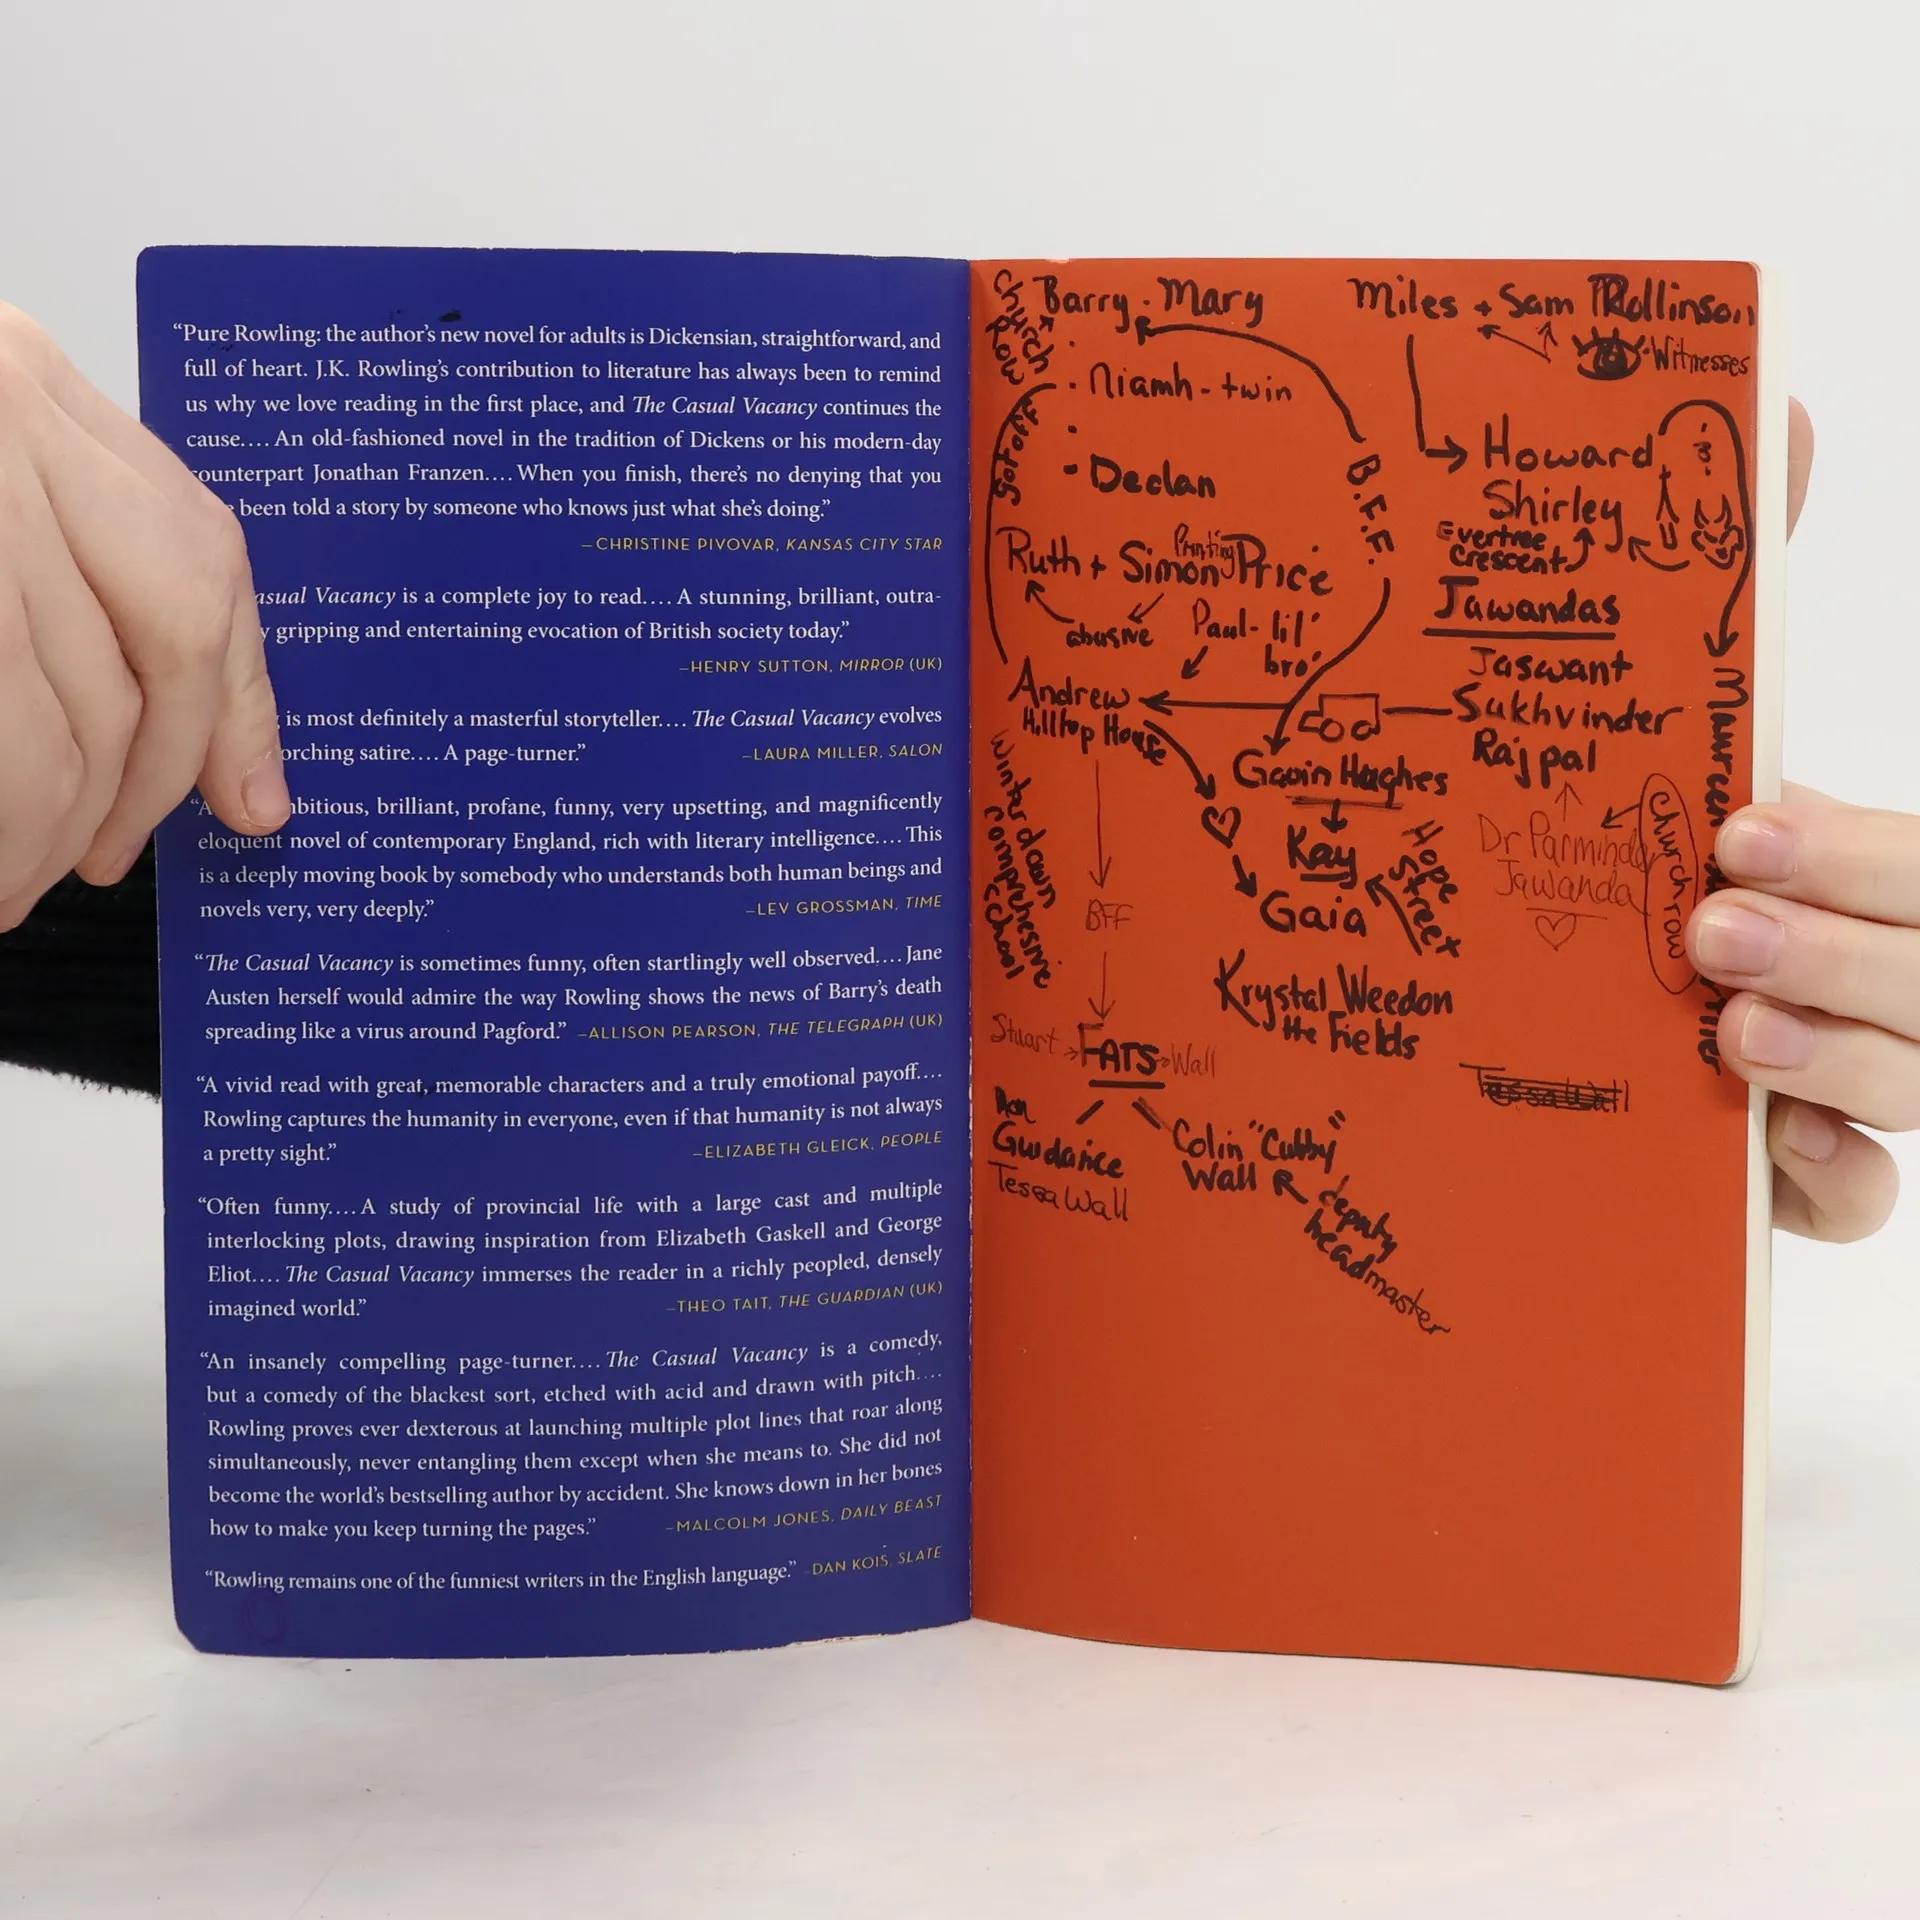 “Pure Rowling: the author’s new novel for adults is Dickensian, straightforward, and
full of heart. J.K. Rowling’s contribution to literature has always been to remind
us why we love reading in the first place, and The Casual Vacancy continues the
cause.... An old-fashioned novel in the tradition of Dickens or his modern-day
counterpart Jonathan Franzen.... When you finish, there’s no denying that you
been told a story by someone who knows just what she’s doing.”
—CHRISTINE PIVOVAR, KANSAS CITY STAR
asual Vacancy is a complete joy to read.... A stunning, brilliant, outra-
y gripping and entertaining evocation of British society today.”
—HENRY SUTTON, MIRROR (UK)
is most definitely a masterful storyteller.... The Casual Vacancy evolves
orching satire.... A page-turner.”
—LAURA MILLER, SALON
“A mbitious, brilliant, profane, funny, very upsetting, and magnificently
eloquent novel of contemporary England, rich with literary intelligence.... This
is a deeply moving book by somebody who understands both human beings and
novels very, very deeply.”
—LEV GROSSMAN, TIME
“The Casual Vacancy is sometimes funny, often startlingly well observed.... Jane
Austen herself would admire the way Rowling shows the news of Barry’s death
spreading like a virus around Pagford.” —ALLISON PEARSON, THE TELEGRAPH (UK)
“A vivid read with great, memorable characters and a truly emotional payoff....
Rowling captures the humanity in everyone, even if that humanity is not always
a pretty sight.”
—ELIZABETH GLEICK, PEOPLE
“Often funny.... A study of provincial life with a large cast and multiple
interlocking plots, drawing inspiration from Elizabeth Gaskell and George
Eliot.... The Casual Vacancy immerses the reader in a richly peopled, densely
imagined world.”
—THEO TAIT, THE GUARDIAN (UK)
“An insanely compelling page-turner.... The Casual Vacancy is a comedy,
but a comedy of the blackest sort, etched with acid and drawn with pitch....
Rowling proves ever dexterous at launching multiple plot lines that roar along
simultaneously, never entangling them except when she means to. She did not
become the world’s bestselling author by accident. She knows down in her bones
how to make you keep turning the pages.”
—MALCOLM JONES, DAILY BEAST
“Rowling remains one of the funniest writers in the English language.” DAN KOIS, SLATE
Church
Row
Barry · Mary
· Niamh - twin
· Declan
B.F.F.
Ruth + Simon Price
Printing
abusive
Paul - lil'
bro'
Andrew
Hilltop House
Winterdown
Comprehesive
School
BFF
Stuart
FATS
Wall
Guidance
Tessa Wall
Colin "Cubby"
Wall
deputy
headmaster
Miles + Sam Mollinson
Witnesses
Howard
Shirley
Evertree
Crescent
Maureen
Jawandas
Jaswant
Sukhvinder
Rajpal
Dr Parminder
Jawanda
Church row
Gavin Hughes
Kay
Hope
Street
Gaia
Krystal Weedon
the Fields
Tessa Wall